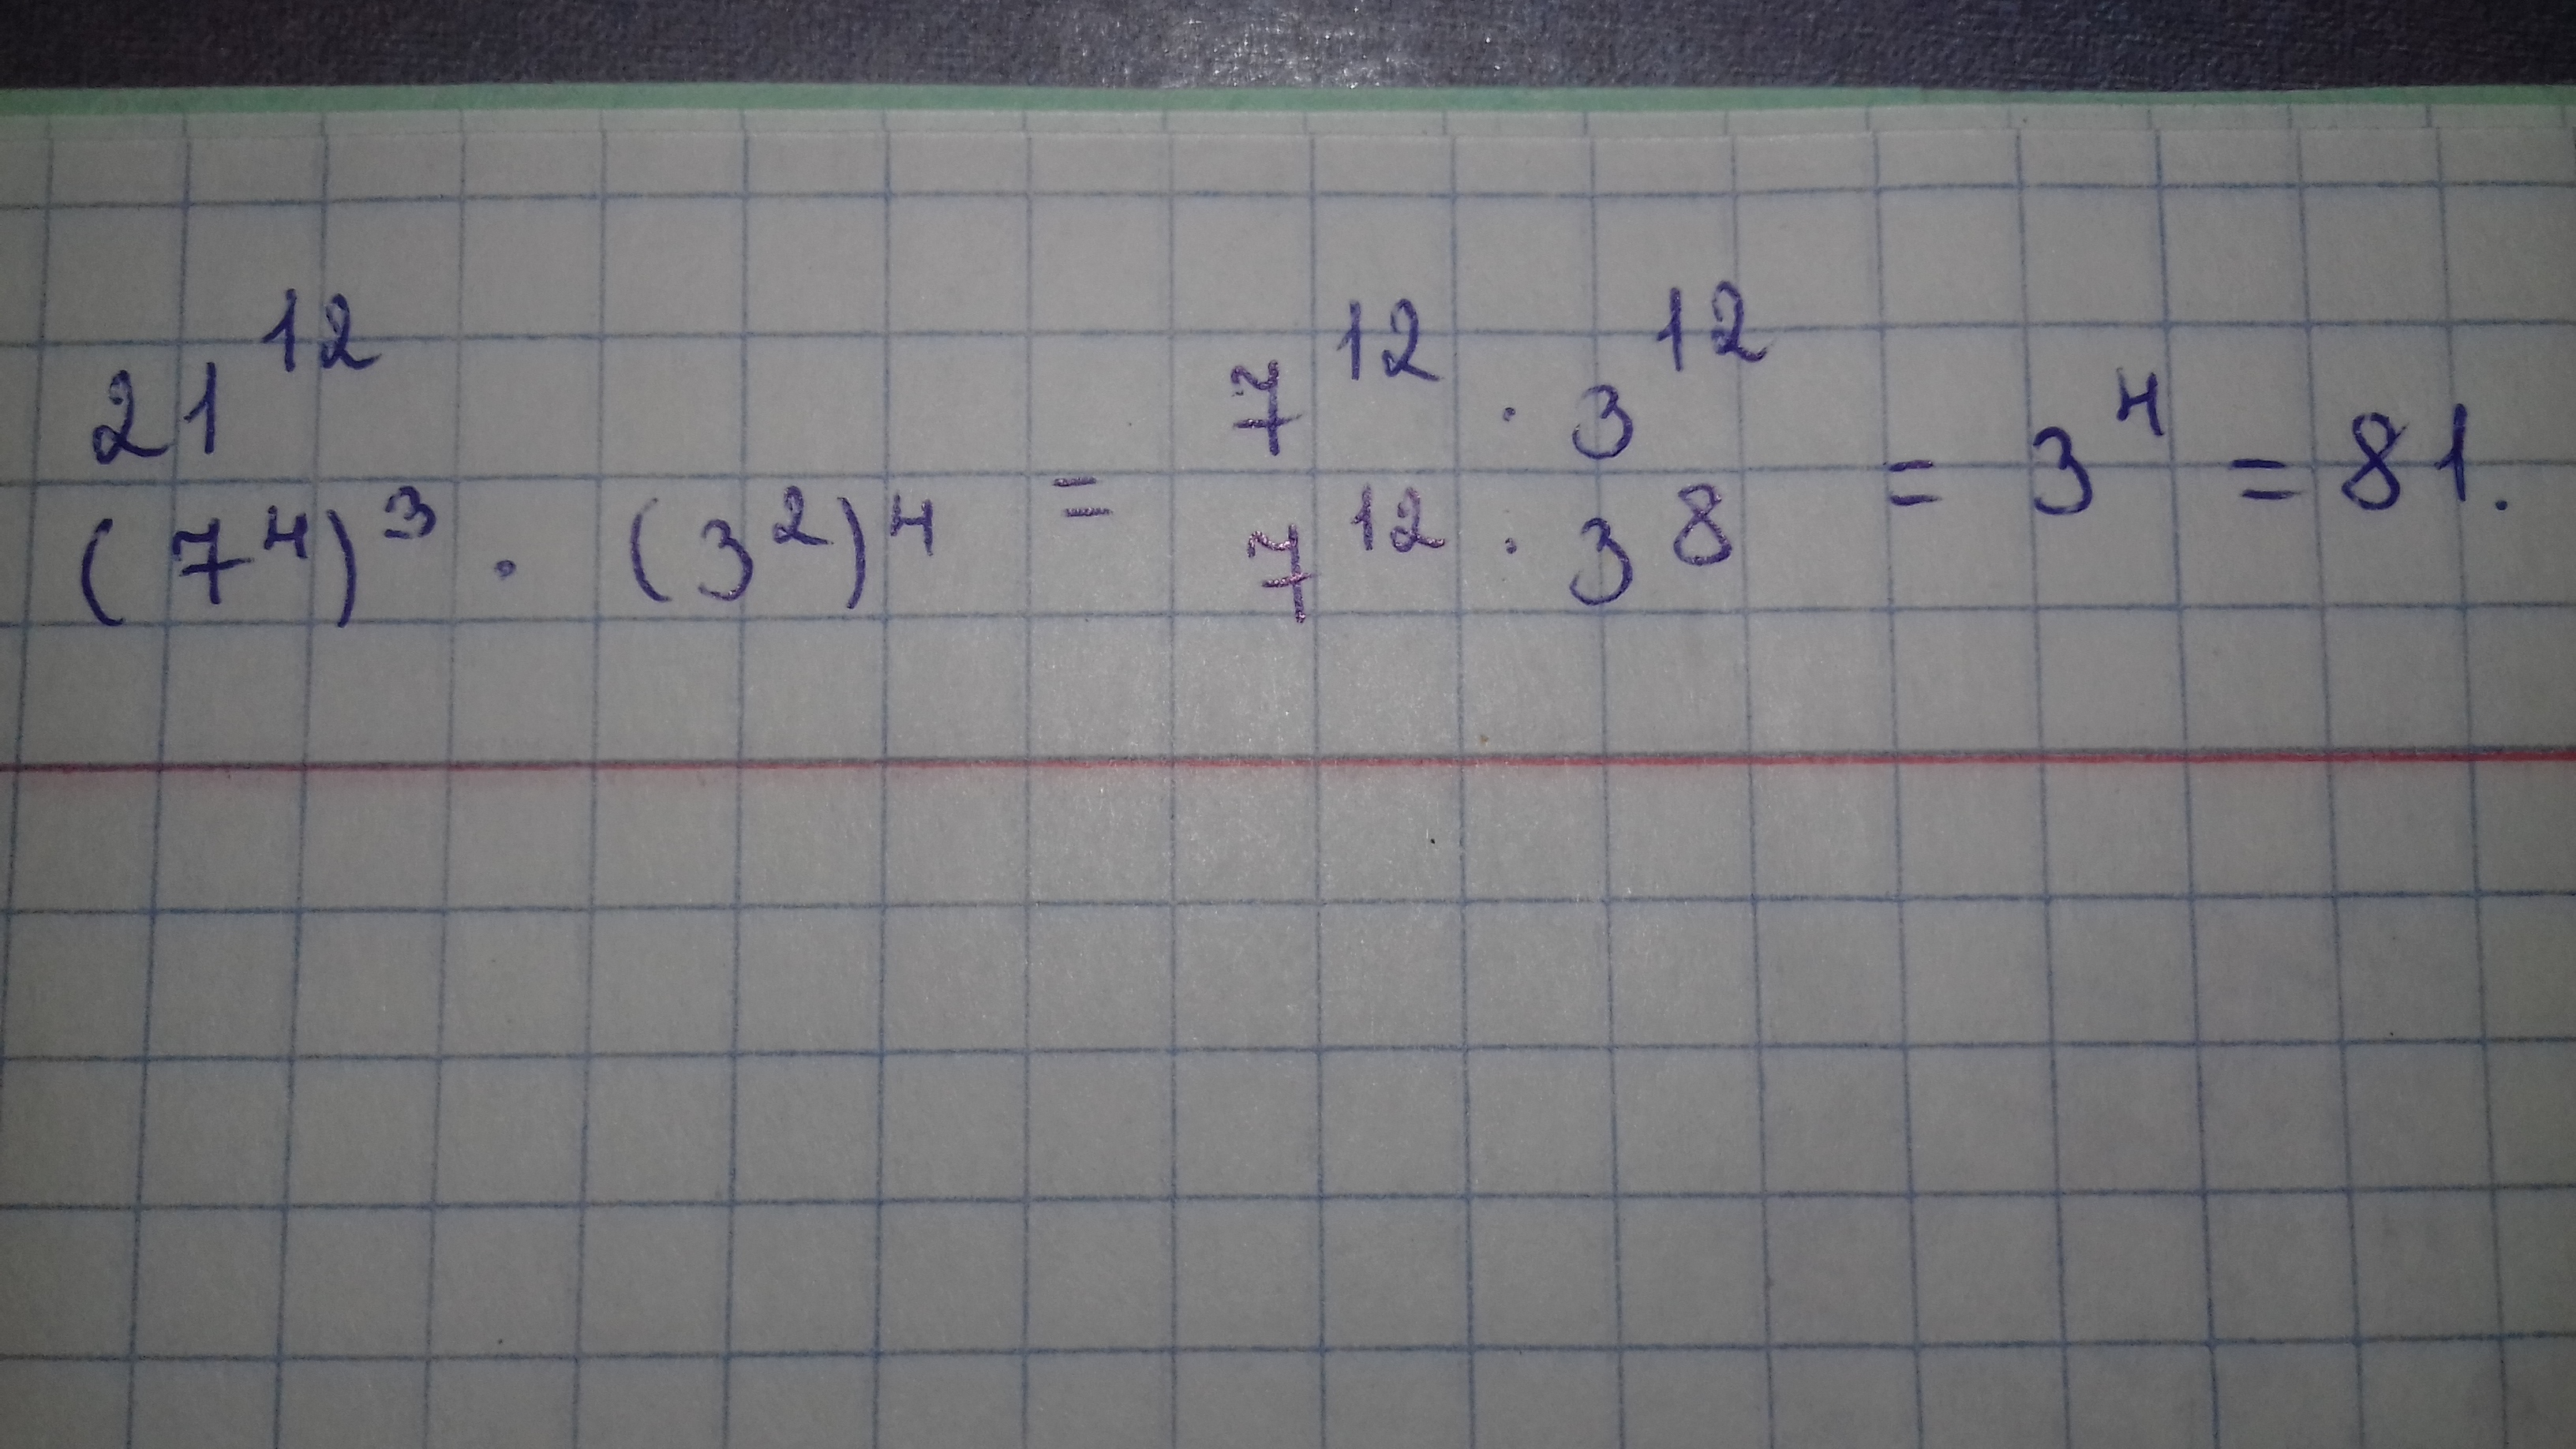 21^12 / (7^4)^3 · (3^2)^4 = 7^12 · 3^12 / 7^12 · 3^8 = 3^4 = 81.